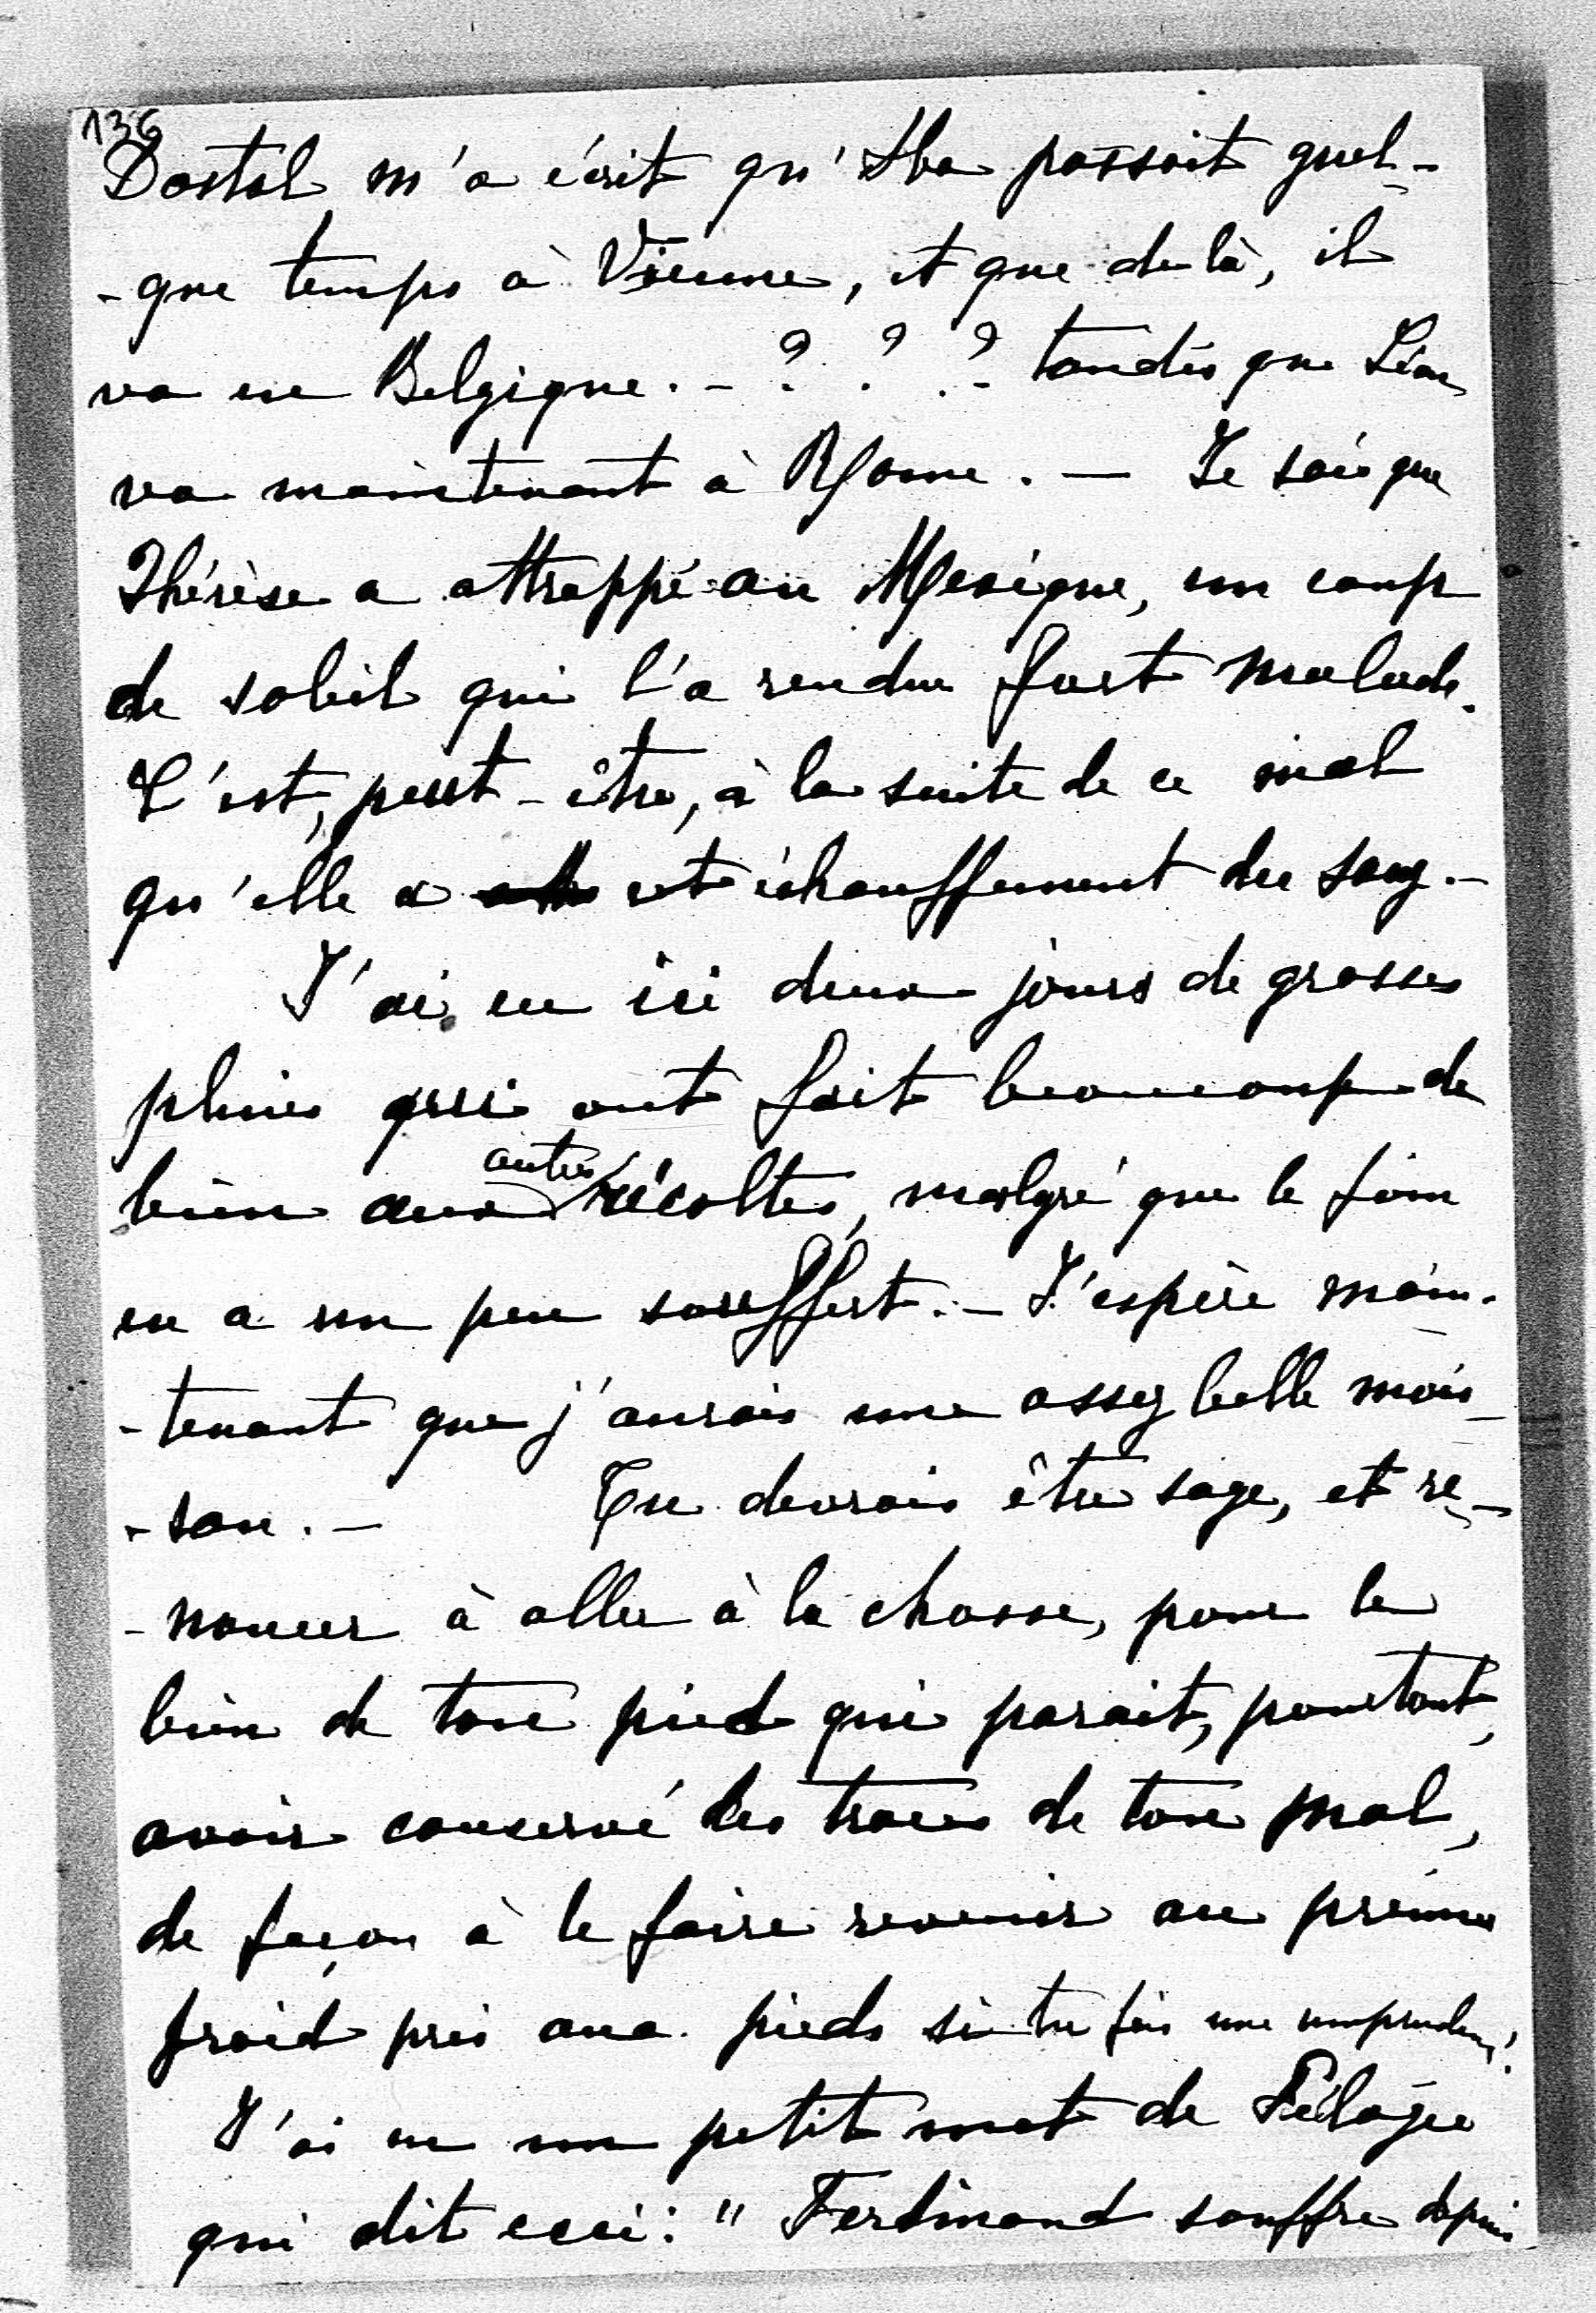 136
Dostal m'a écrit qu'Sba passait quel-
-que temps à Vienne, et que de là, il
va en Belgique. - ? ? ? tandis que Léon
va maintenant à Rome. — Je sais que
Thérèse a attrappé au Mexique, un coup
de soleil qui l'a rendue fort malade.
C'est, peut-être, à la suite de ce mal
qu'elle a cet échauffement du sang. -
J'ai eu ici deux jours de grosses
pluies qui ont fait beaucoup de
bien aux autres récoltes, malgré que le foin
en a un peu souffert. - J'espère main-
-tenant que j'aurais une assez belle mois-
-son. - Tu devrais être sage, et re-
-noncer à aller à la chasse, pour le
bien de ton pied qui parait, pourtant,
avoir conservé des traces de ton mal,
de façon à le faire revenir au premier
froid pris aux pieds si tu fais une imprudence.
J'ai eu un petit mot de Pélagie
qui dit ceci: " Ferdinand souffre depuis